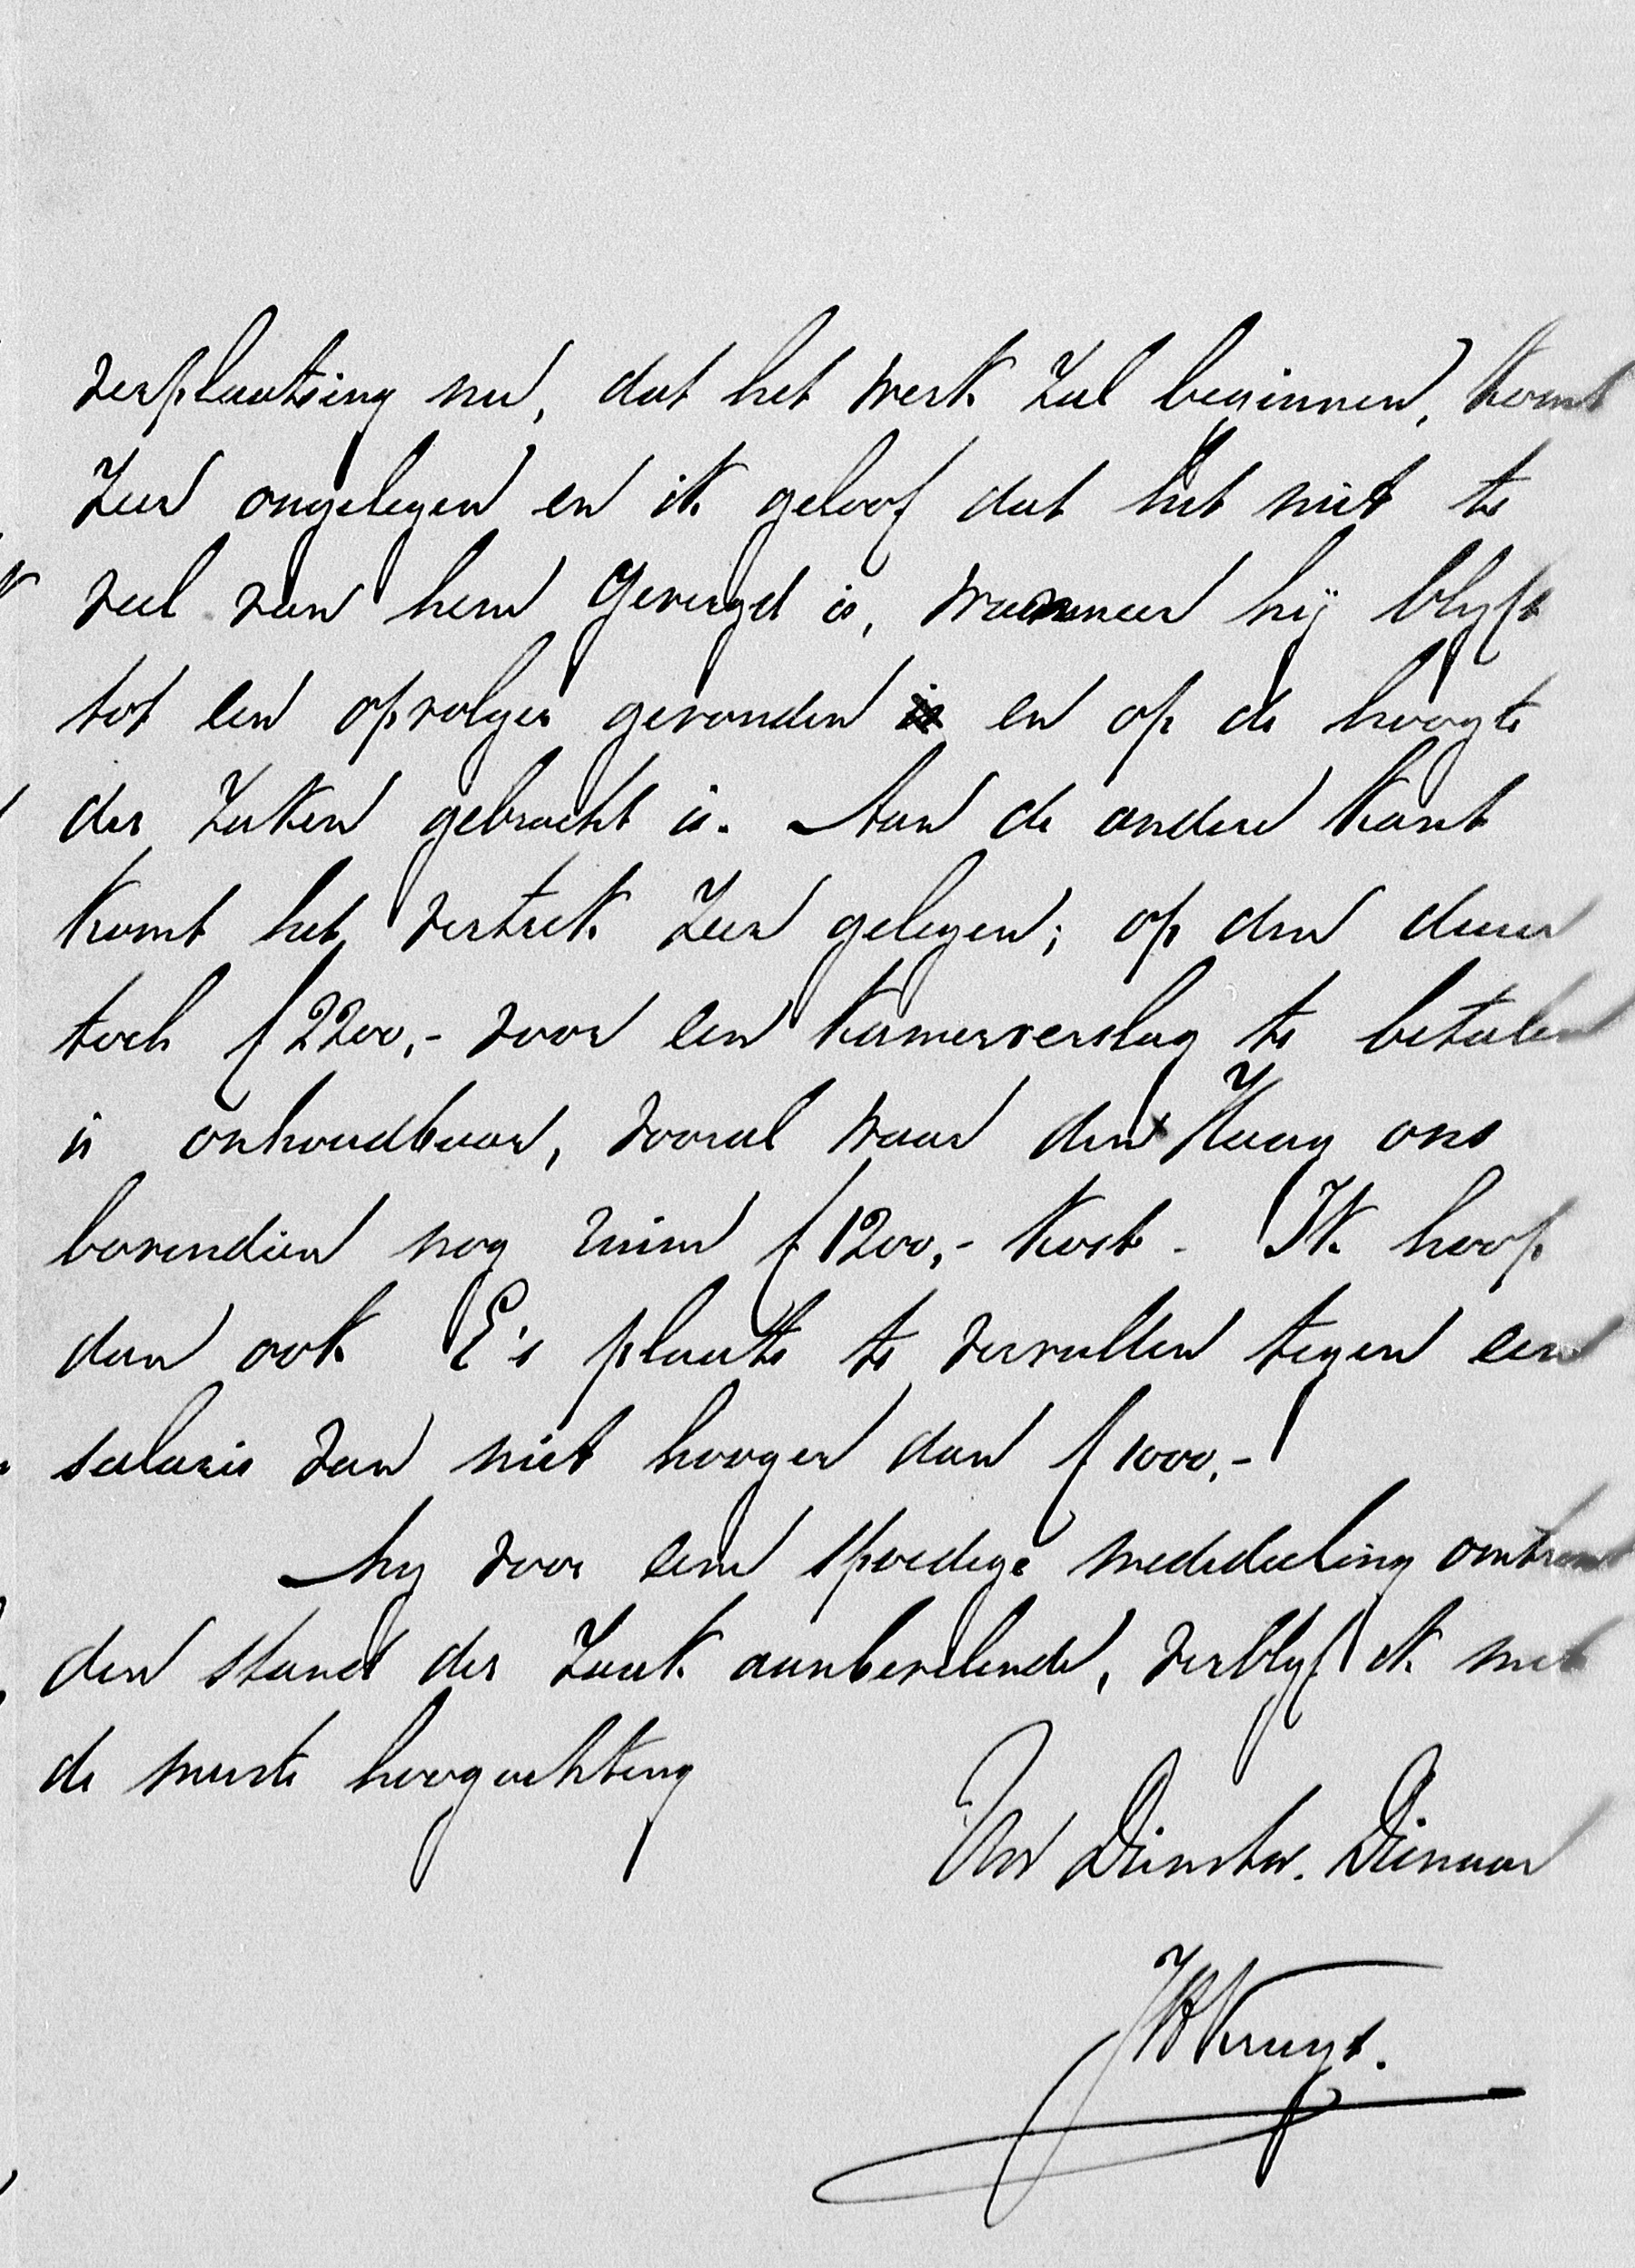 verplaatsing nu, dat het werk zal beginnen, komt
zeer ongelegen en ik geloof dat het niet te
veel van hem gevergd is, wanneer hij blyft
tot een opvolger gevonden en op de hoogte
der zaken gebracht is. Aan de andere kant
komt het vertrek zeer gelegen; op den duur
toch f 2200,- voor een kamerverslag te betalen
is onhoudbaar, vooral waar den Haag ons
bovendien nog ruim f 1200,- kost. Ik hoop
dan ook E's plaats te vervullen tegen een
salaris van niet hooger dan f 1000,-
My voor eene spoedige mededeeling omtrent
den stand der zaak aanbevelende, verblyf ik met
de meeste hoogachting
Uw Dienstw. Dienaar
JB Kruyt.